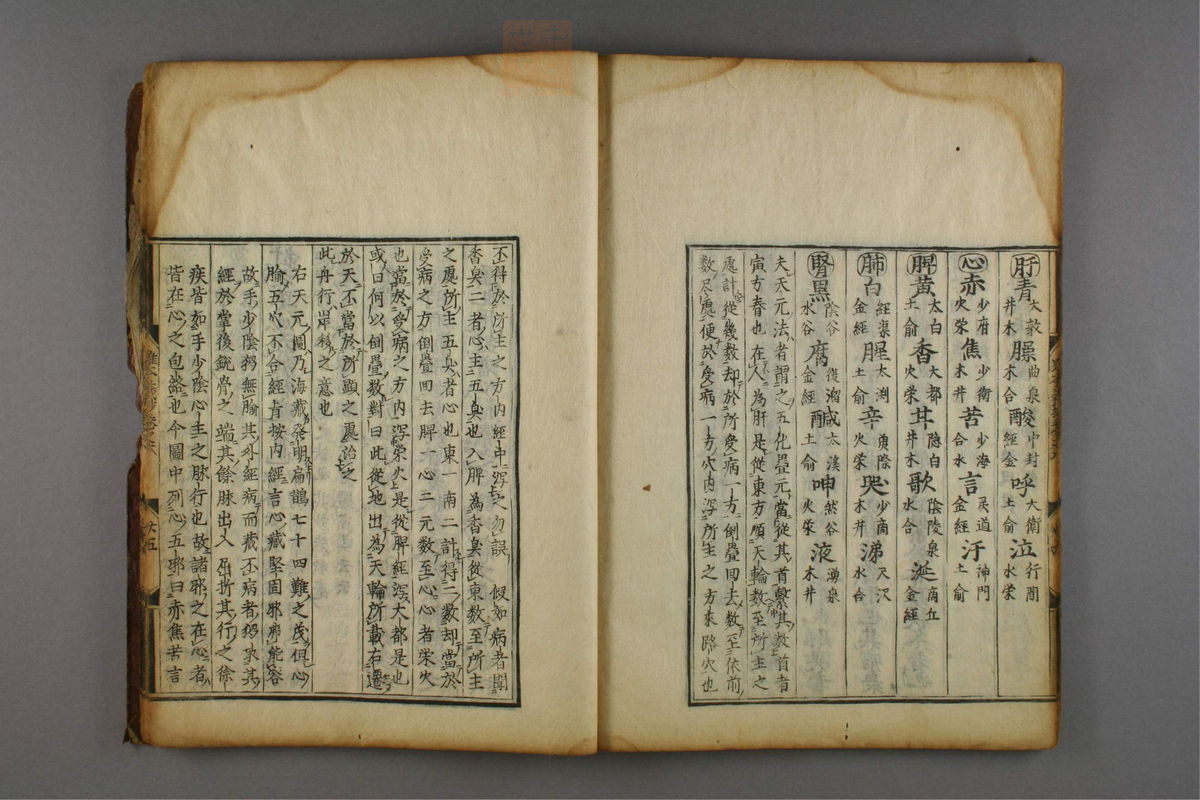 肝青大敦井木臊曲泉木合酸中封經金呼大衝土俞泣行間水滎
心赤少府火滎焦少衝木井苦少海合水言灵道金經汗神門土俞
脾黄太白土俞香大都火滎甘隐白井木歌陰陵泉水合涎商丘金經
肺白經渠金經腥太渊土俞辛魚際火滎哭少商木井涕尺沢水合
腎黒陰谷水谷腐復溜金經醎太溪土俞呻然谷火滎液湧泉木井
夫天元法者謂之五化疊元當從其首繫其數首者
寅方春也在人為肝是從東方順天輪數至所主之
處計從幾數却於所受病一方倒疊回去數至依前
數尽處便於受病一方穴内瀉所主之方來路穴也
不得於所主之方内經中瀉之勿誤 假如病者聞
香臭二者心主五臭也入脾為香臭從東數至所主
之處所主五臭者心也東一南二計得二數却當於
受病之方倒疊回去脾一心二元數至心心者滎火
也當於受病之方内瀉滎火是從脾經瀉大都是也
或曰何以倒疊數對曰此從地出為天輪所載右遷
於天不當於所顕之處治之
此舟行岸移之意也
右天元圖乃海藏発明扁鵲七十四難之茂但心
腧五穴不合經肯按内經言心藏堅固邪弗能容
故手少陰獨無腧其外經病而藏不病者獨取其
經於掌後銳骨之端其餘脉出入屈折其行之徐
疾皆如手少陰心主之脉行也故諸邪之在心者
皆在心之包絡也今圖中列心五邪曰赤焦苦言